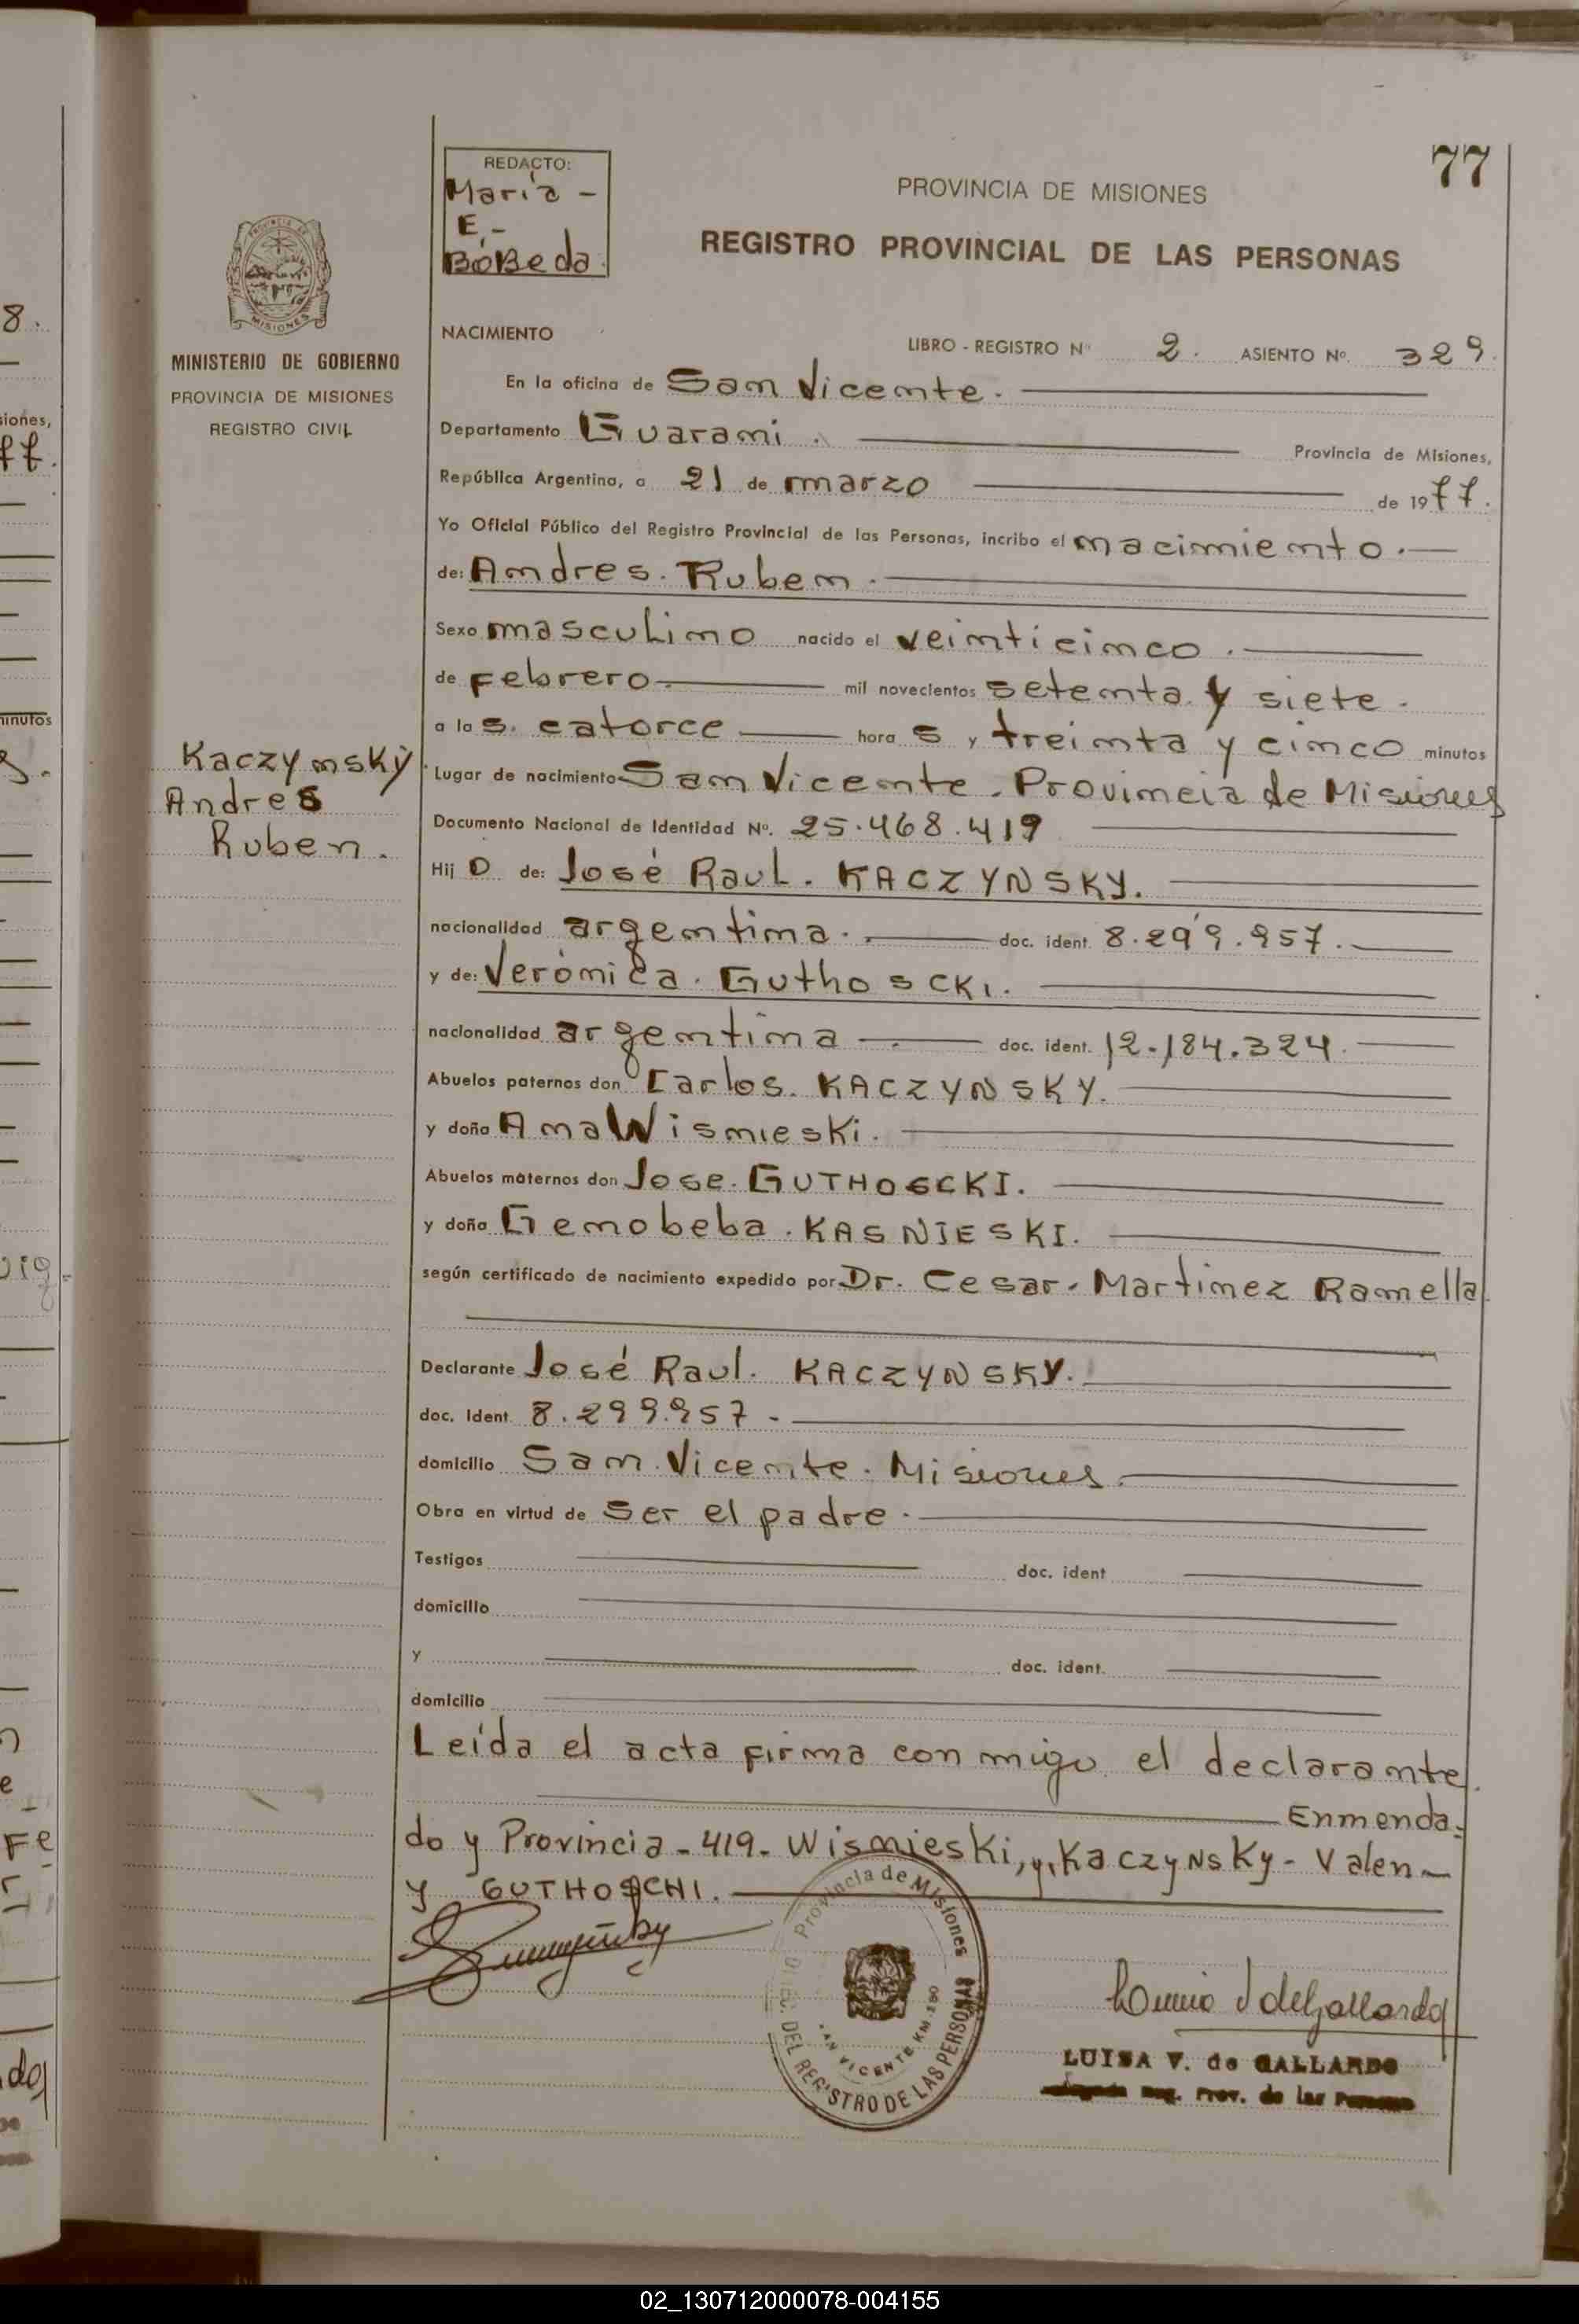 77
REDACTO:
María -
E.-
BóBeda.
PROVINCIA DE MISIONES
REGISTRO PROVINCIAL DE LAS PERSONAS
MISIONES
MINISTERIO DE GOBIERNO
PROVINCIA DE MISIONES
REGISTRO CIVIL
NACIMIENTO
LIBRO - REGISTRO Nº 2. ASIENTO Nº. 329.
En la oficina de San Vicente.
Departamento Guarani. Provincia de Misiones,
República Argentina, a 21 de marzo de 1977.
Yo Oficial Público del Registro Provincial de las Personas, incribo el nacimiento.
de: Andres. Ruben.
Sexo masculino nacido el veinticinco.
de Febrero mil novecientos setenta y siete.
a las. catorce horas y treinta y cinco minutos
Kaczynsky
Andres
Ruben.
Lugar de nacimiento San Vicente. Provincia de Misiones
Documento Nacional de Identidad Nº. 25.468.419
Hijo de: José Raul. KACZYNSKY.
nacionalidad argentina. doc. ident. 8.299.957.
y de: Verónica. Guthoscki.
nacionalidad argentina doc. ident. 12.184.324.
Abuelos paternos don Carlos. KACZYNSKY.
y doña Ana Wisnieski.
Abuelos maternos don Jose. GUTHOSCKI.
y doña Genobeba. KASNIESKI.
según certificado de nacimiento expedido por Dr. Cesar. Martinez Ramella.
Declarante José Raul. KACZYNSKY.
doc. Ident. 8.299.957-
domicilio San Vicente. Misiones.
Obra en virtud de ser el padre.
Testigos doc. ident
domicilio
y doc. ident.
domicilio
Leída el acta firma conmigo el declarante.
Enmenda-
do y Provincia-419-Wisnieski, y, KaczyNsKy-Valen-
y GUTHOSCHI.
Provincia de Misiones
SAN VICENTE KM. 280
DEL REGISTRO DE LAS PERSONAS
LUISA V. de GALLARDO
Reg. Prov. de las Personas
02_130712000078-004155